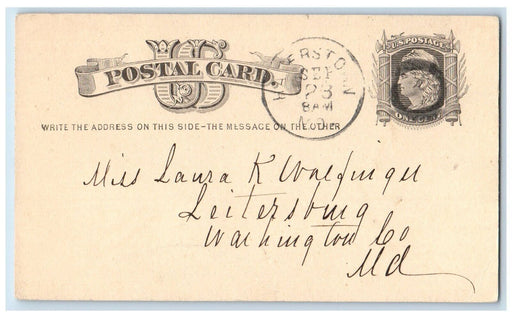 US
POSTAL CARD.
WRITE THE ADDRESS ON THIS SIDE-THE MESSAGE ON THE OTHER
SEP
23
8AM
U.S. POSTAGE
ONE CENT
Miss Laura K
Leitersburg
Washington Co
Md